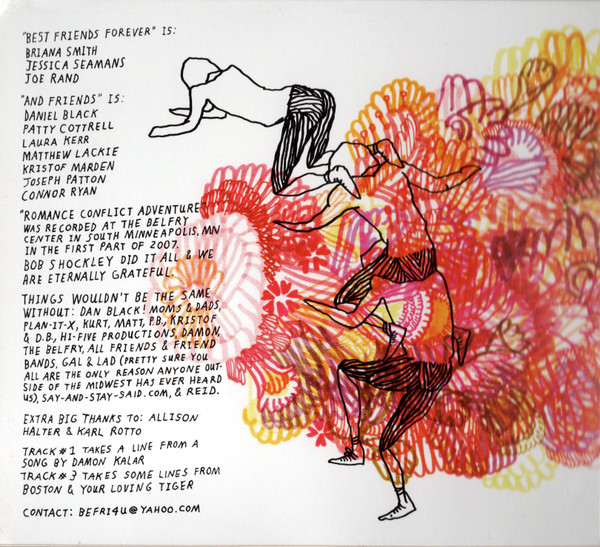 "BEST FRIENDS FOREVER" IS:
BRIANA SMITH
JESSICA SEAMANS
JOE RAND
"AND FRIENDS" IS:
DANIEL BLACK
PATTY COTTRELL
LAURA KERR
MATTHEW LACKIE
KRISTOF MARDEN
JOSEPH PATTON
CONNOR RYAN
"ROMANCE CONFLICT ADVENTURE"
WAS RECORDED AT THE BELFRY
CENTER IN SOUTH MINNEAPOLIS, MN
IN THE FIRST PART OF 2007.
BOB SHOCKLEY DID IT ALL & WE
ARE ETERNALLY GRATEFUL.
THINGS WOULDN'T BE THE SAME
WITHOUT: DAN BLACK! MOMS & DADS,
PLAN-IT-X, KURT, MATT, P.B., KRISTOF
& D.B., HI-FIVE PRODUCTIONS, DAMON,
THE BELFRY, ALL FRIENDS & FRIEND
BANDS, GAL & LAD (PRETTY SURE YOU
ALL ARE THE ONLY REASON ANYONE OUT-
SIDE OF THE MIDWEST HAS EVER HEARD
US), SAY-AND-STAY-SAID.COM, & REID.
EXTRA BIG THANKS TO: ALLISON
HALTER & KARL ROTTO
TRACK #1 TAKES A LINE FROM A
SONG BY DAMON KALAR
TRACK #3 TAKES SOME LINES FROM
BOSTON & YOUR LOVING TIGER
CONTACT: BEFRI4U@YAHOO.COM